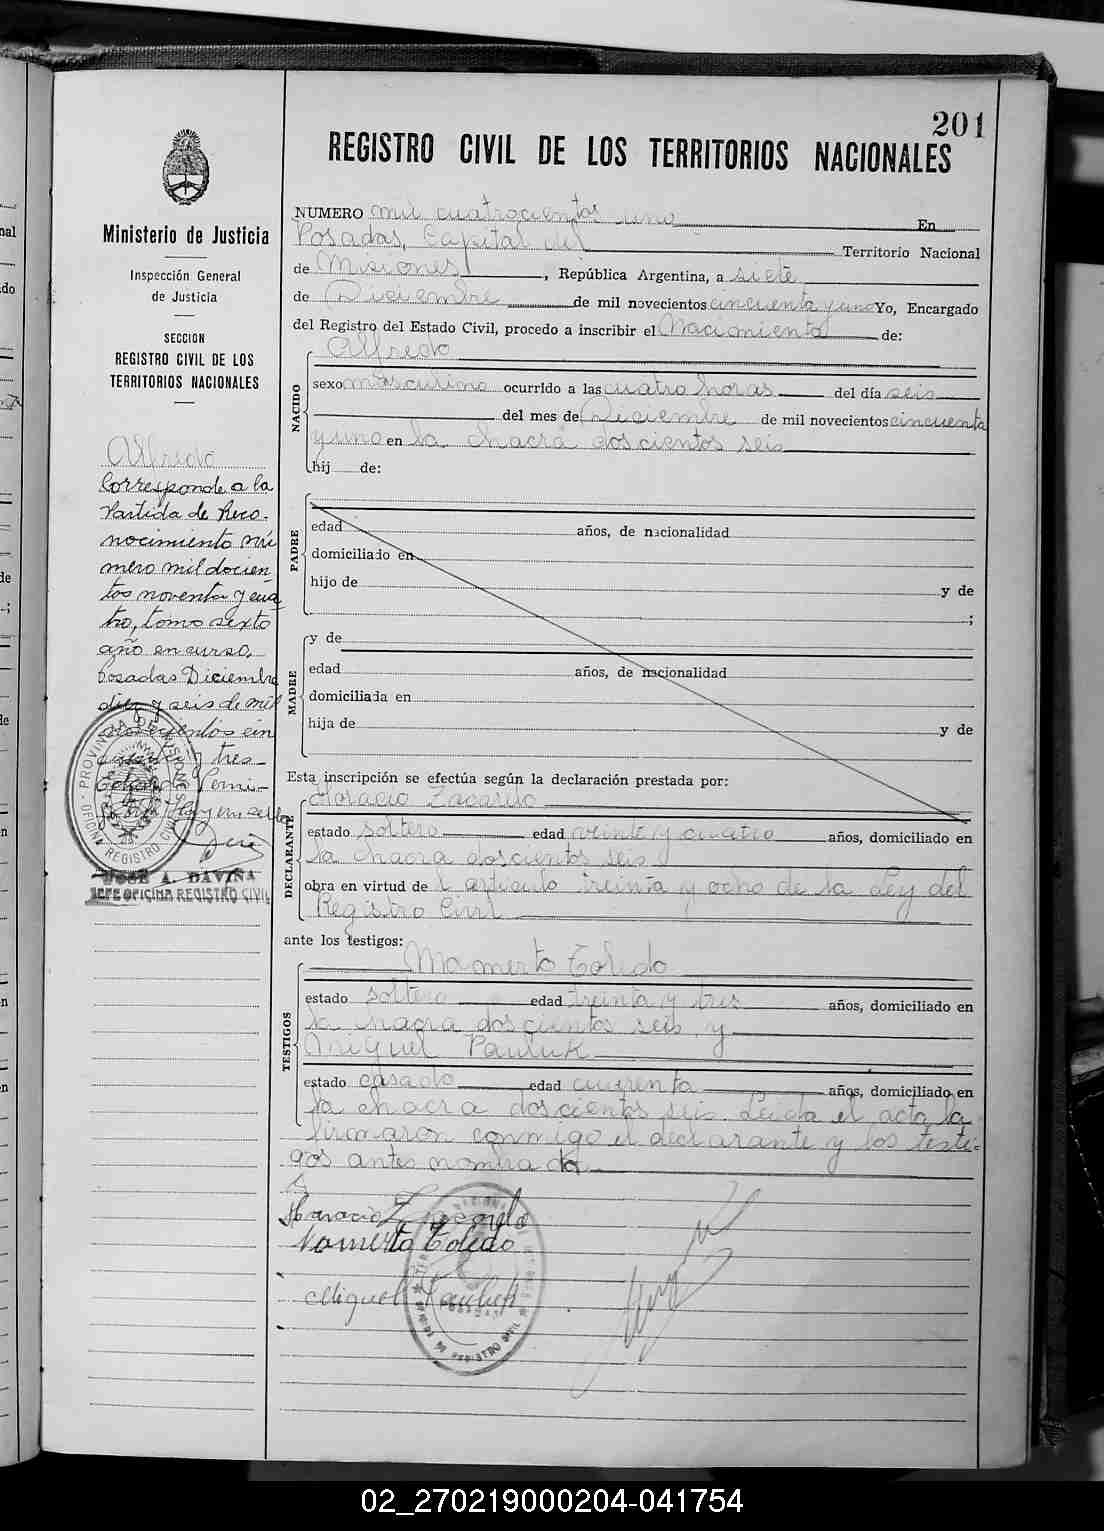 201
REGISTRO CIVIL DE LOS TERRITORIOS NACIONALES
NUMERO mil cuatrocientos uno En
Posadas, Capital del Territorio Nacional
de Misiones, República Argentina, a siete
de Diciembre de mil novecientos cincuenta y uno Yo, Encargado
del Registro del Estado Civil, procedo a inscribir el Nacimiento de:
NACIDO
Alfredo
sexo masculino ocurrido a las cuatro horas del día seis
del mes de Diciembre de mil novecientos cincuenta
y uno en la chacra doscientos seis
hij de:
PADRE
edad años, de nacionalidad
domiciliado en
hijo de y de
;
MADRE
y de
edad años, de nacionalidad
domiciliada en
hija de y de
Esta inscripción se efectúa según la declaración prestada por:
DECLARANTE
Horacio
estado soltero edad veinte y cuatro años, domiciliado en
la chacra doscientos seis
obra en virtud de l artículo treinta y ocho de la Ley del
Registro Civil
ante los testigos:
TESTIGOS
Mamerto Toledo
estado soltero edad treinta y tres años, domiciliado en
la chacra doscientos seis, y
Miguel Pauluk
estado casado edad cuarenta años, domiciliado en
la chacra doscientos seis. Leida el acta la
firmaron conmigo el declarante y los testi-
gos antes nombrados
Horacio
Mamerto Toledo
Miguel Pauluk
Ministerio de Justicia
Inspección General
de Justicia
SECCION
REGISTRO CIVIL DE LOS
TERRITORIOS NACIONALES
Alfredo
Corresponde a la
Partida de Reco-
nocimiento nú
mero mil docien
tos noventa y cua
tro, tomo sexto
año en curso,
Posadas Diciembre
diez y seis de mil
novecientos cin
cuenta y tres
PROVINCIA DE MISIONES
OFICINA REGISTRO CIVIL
JOSE A. DAVIÑA
JEFE OFICINA REGISTRO CIVIL
02_270219000204-041754